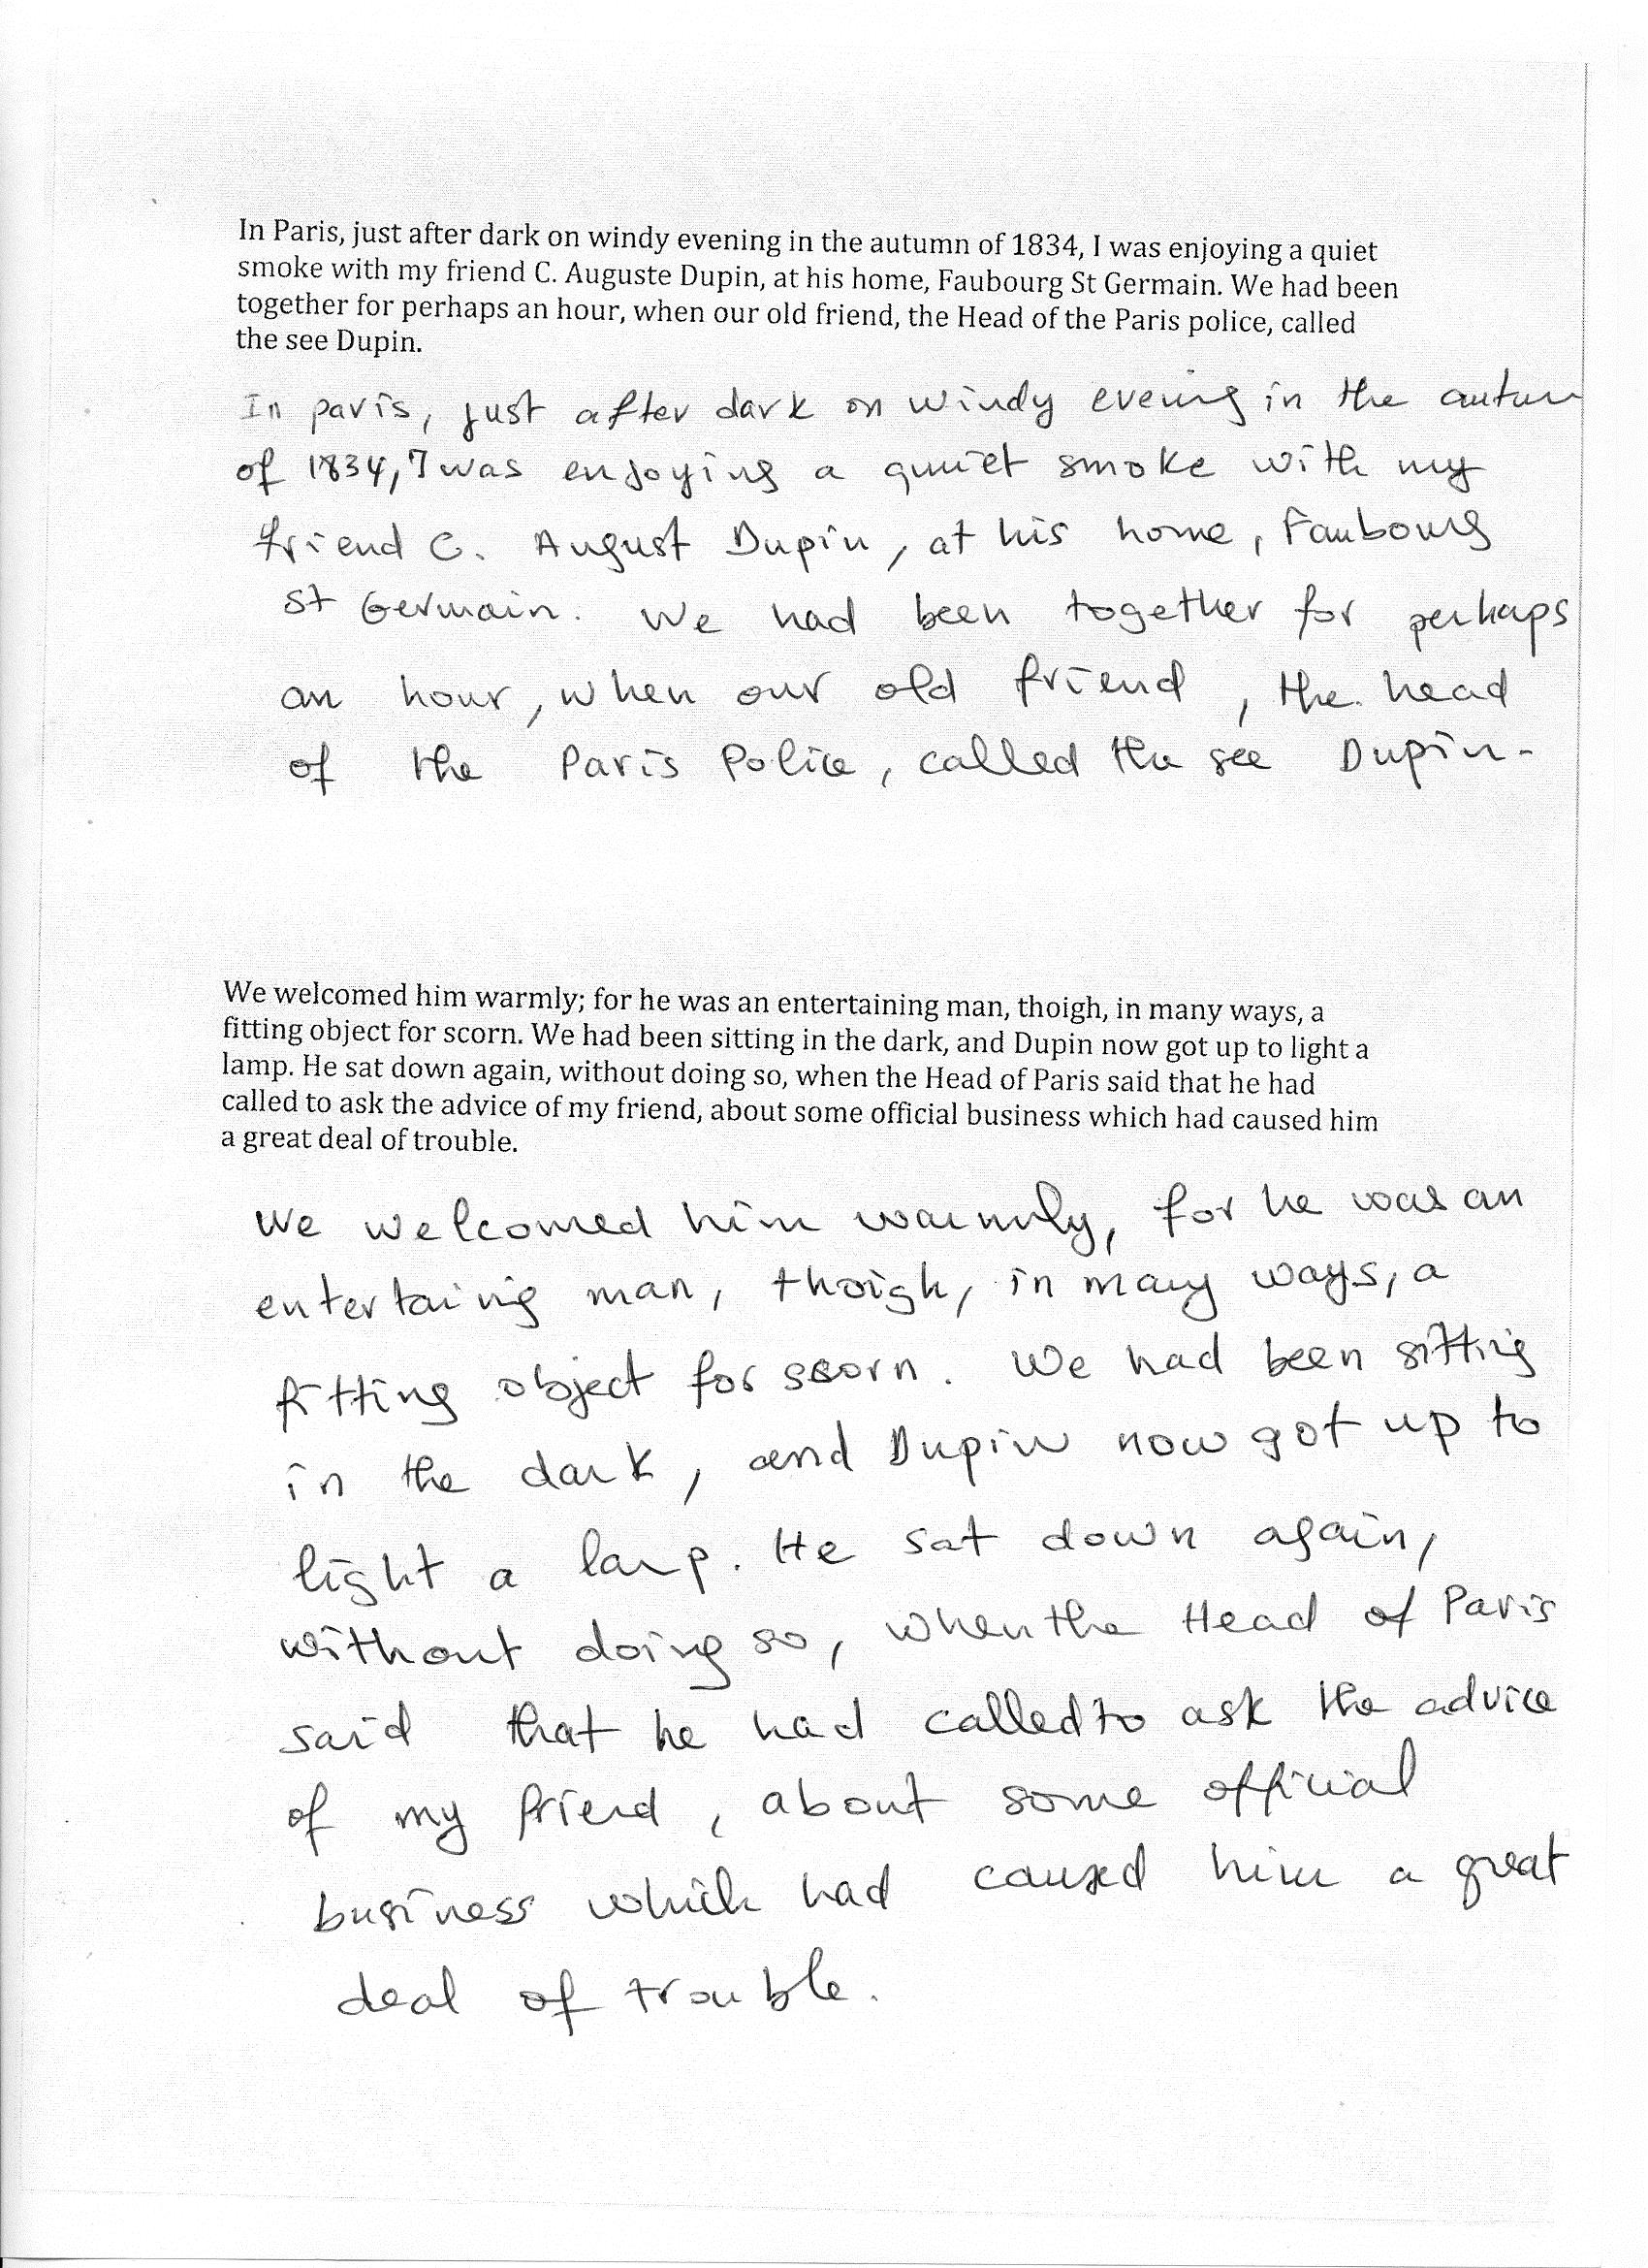 In Paris, just after dark on windy evening in the autumn of 1834, I was enjoying a quiet
smoke with my friend C. Auguste Dupin, at his home, Faubourg St Germain. We had been
together for perhaps an hour, when our old friend, the Head of the Paris police, called
the see Dupin.
In paris, just after dark on windy evening in the autum
of 1834, I was enjoying a quuiet smoke with my
friend C. August Dupin, at his home, Faubourg
St Germain. We had been together for perhaps
an hour, when our old friend, the head
of the Paris Police, called the see Dupin.
We welcomed him warmly; for he was an entertaining man, thoigh, in many ways, a
fitting object for scorn. We had been sitting in the dark, and Dupin now got up to light a
lamp. He sat down again, without doing so, when the Head of Paris said that he had
called to ask the advice of my friend, about some official business which had caused him
a great deal of trouble.
We welcomed him warmly, for he was an
entertaining man, thoigh, in many ways, a
fitting object for scorn. We had been sitting
in the dark, and Dupin now got up to
light a lamp. He sat down again,
without doing so, when the Head of Paris
said that he had called to ask the advice
of my friend, about some official
business which had caused him a great
deal of trouble.